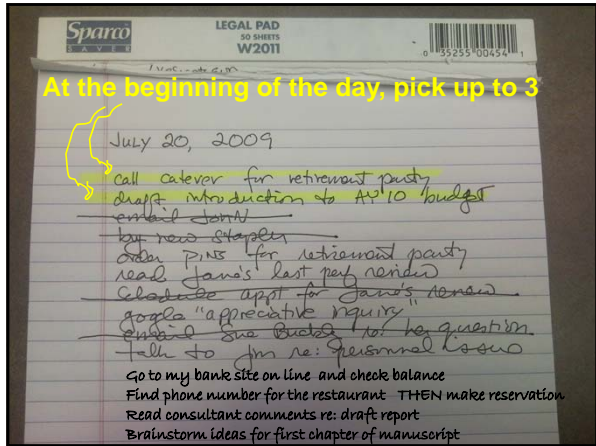 Sparco
SAVER
LEGAL PAD
50 SHEETS
W2011
0 35255 00454 1
At the beginning of the day, pick up to 3
July 20, 2009
call caterer for retirement party
draft introduction to AY 10 budget
email John
by new stapler
order PINS for retirement party
read Jane's last perf review
Schedule appt for Jane's review
google "appreciative inquiry"
email Sue Buckle re: her question
talk to Jim re: personnel issue
Go to my bank site on line and check balance
Find phone number for the restaurant THEN make reservation
Read consultant comments re: draft report
Brainstorm ideas for first chapter of manuscript